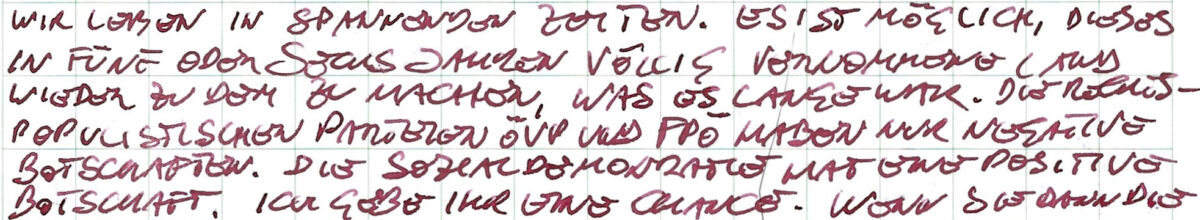 WIR LEBEN IN SPANNENDEN ZEITEN. ES IST MÖGLICH, DIESES
IN FÜNF ODER SECHS JAHREN VÖLLIG VERKOMMENE LAND
WIEDER ZU DEM ZU MACHEN, WAS ES LANGE WAR. DIE RECHTS-
POPULISTISCHEN PARTEIEN ÖVP UND FPÖ HABEN NUR NEGATIVE
BOTSCHAFTEN. DIE SOZIALDEMOKRATIE HAT EINE POSITIVE
BOTSCHAFT. ICH GEBE IHR EINE CHANCE. WENN SIE DANN DIE